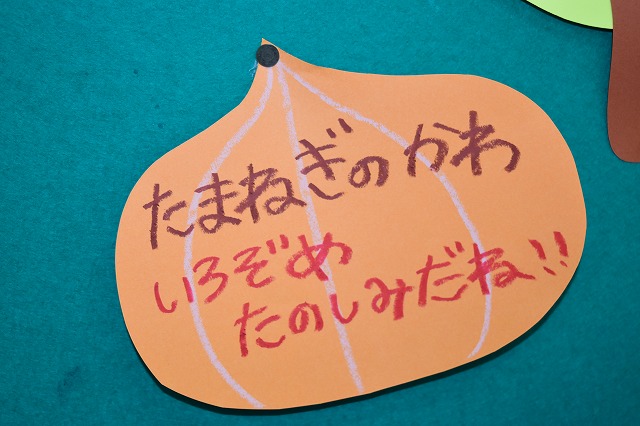 たまねぎのかわ
いろぞめ
たのしみだね!!